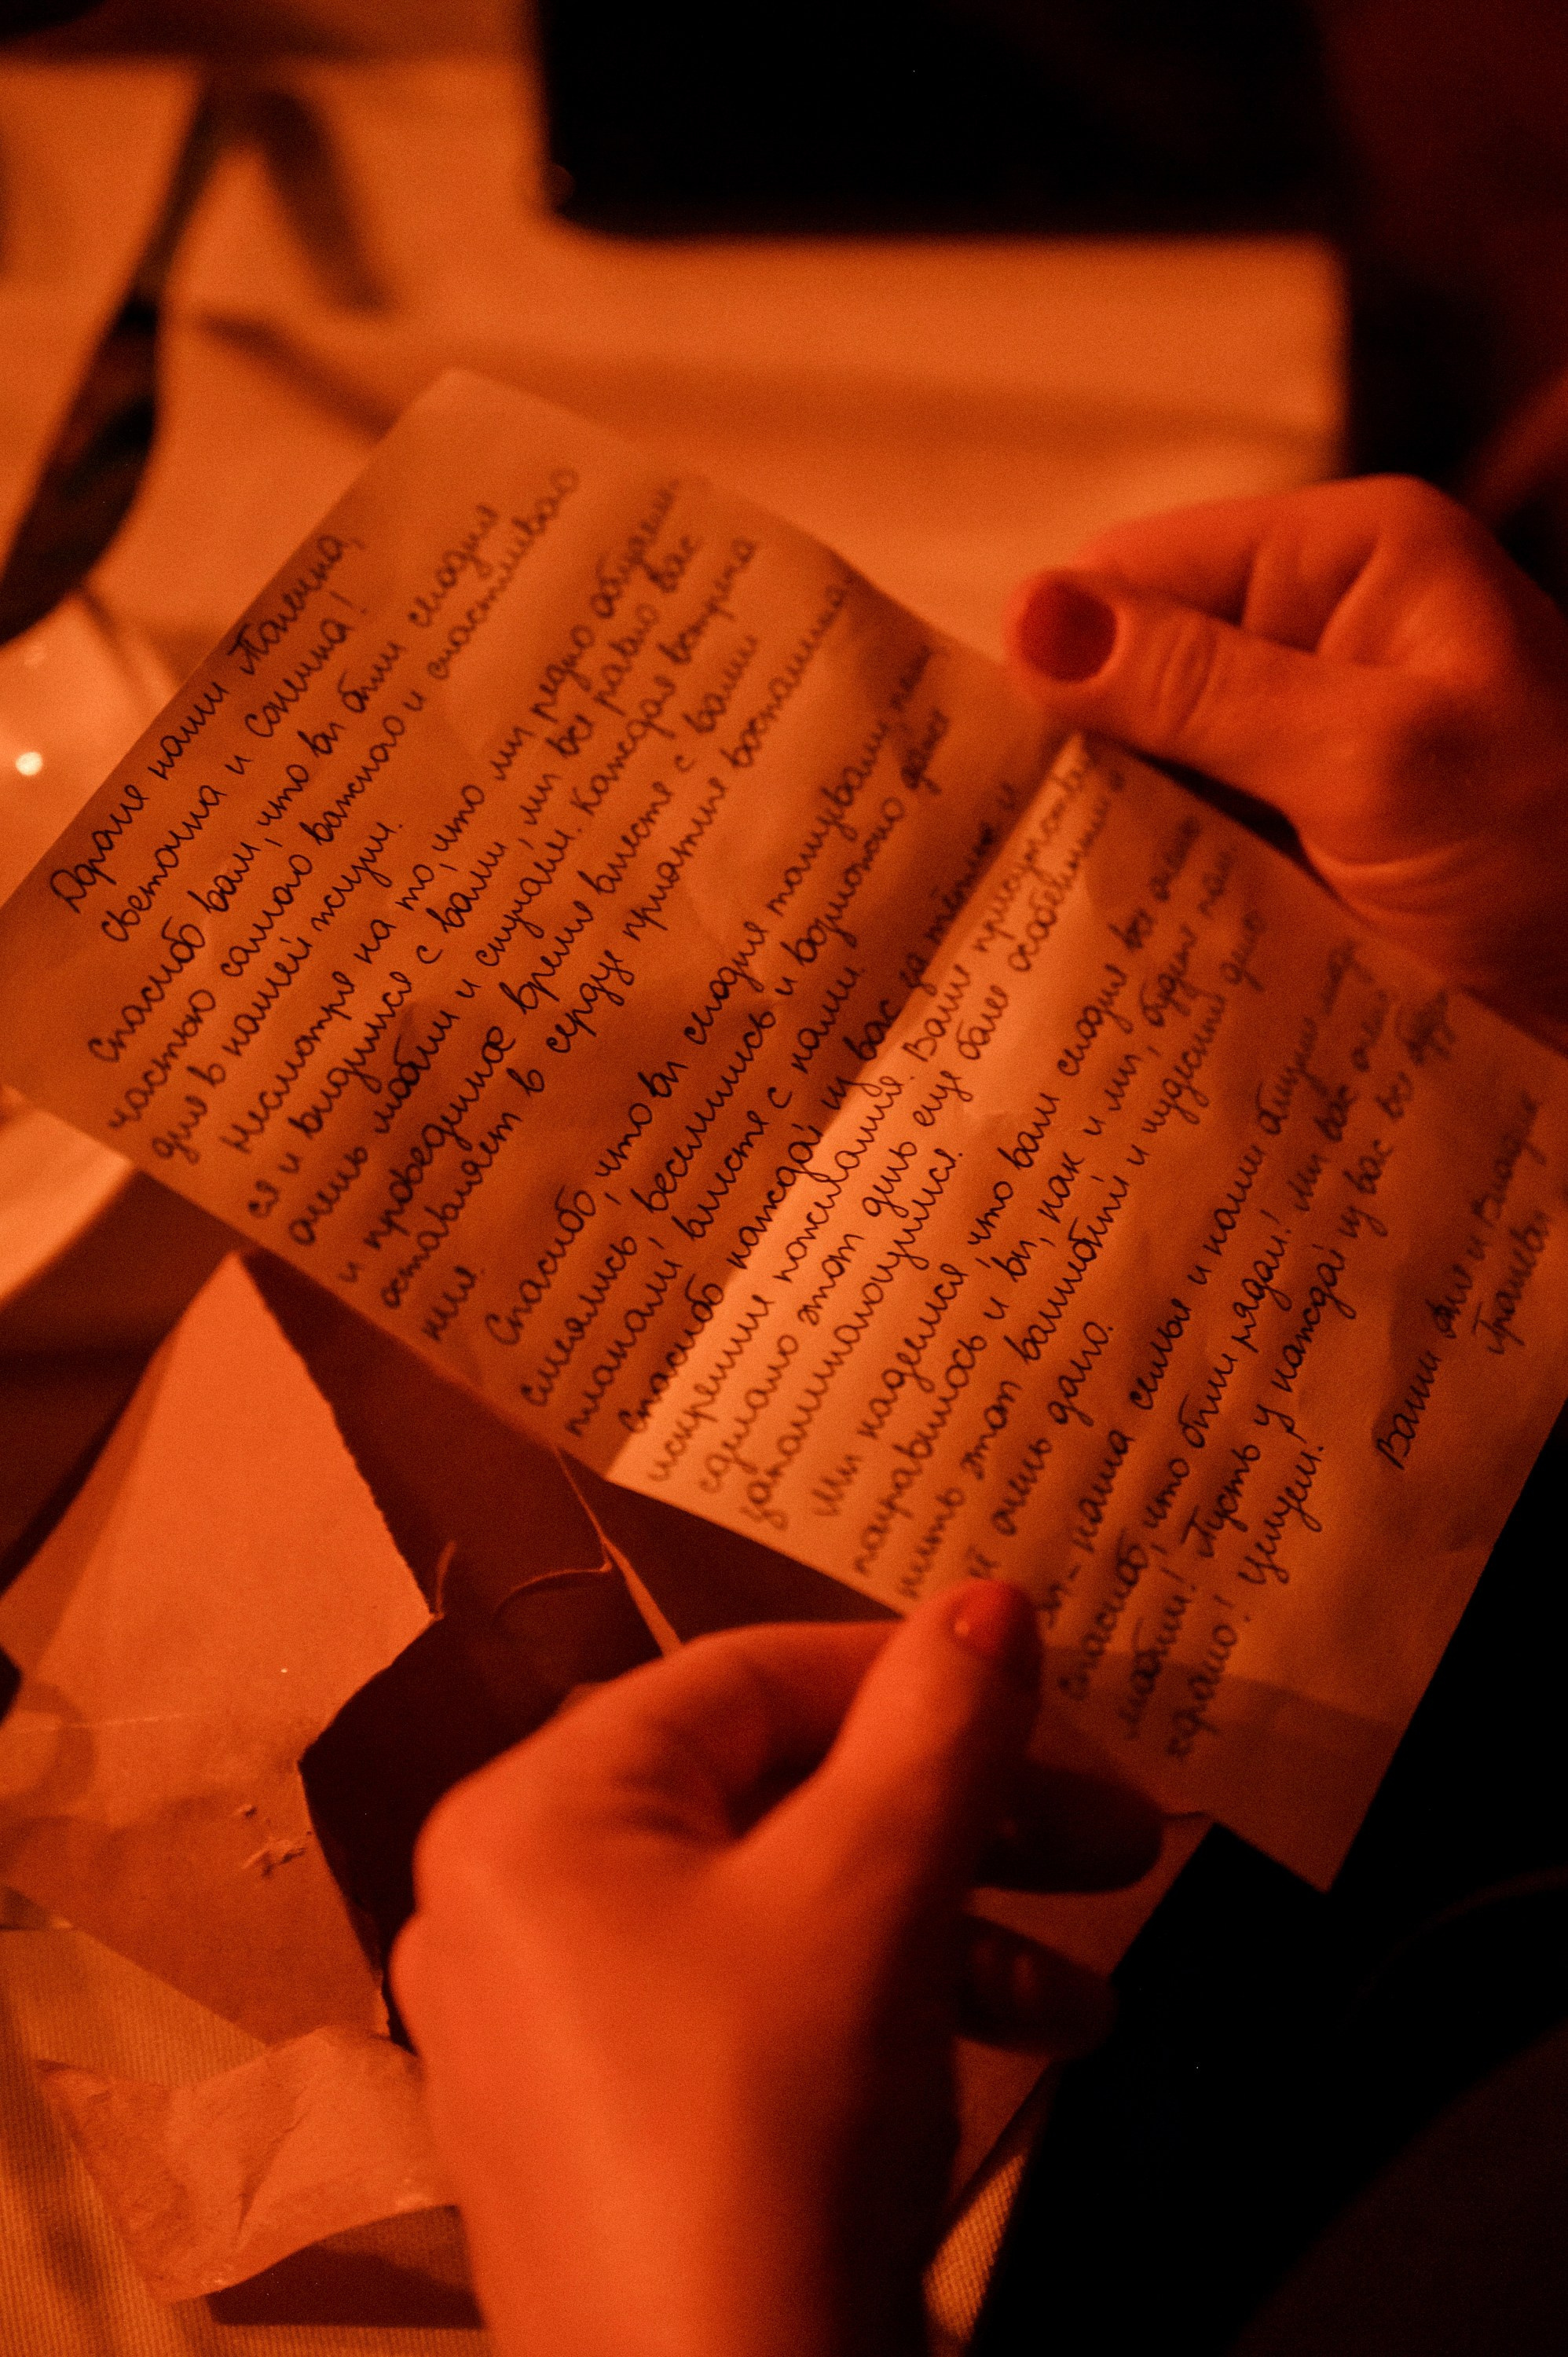 Дорогие наши Полечка,
Светочка и Сонечка!
Спасибо вам, что вы были сегодня
частью самого важного и счастливого
дня в нашей жизни.
Несмотря на то, что мы редко общаем-
ся и видимся с вами, мы все равно вас
очень любим и скучаем. Каждая встреча
и проведенное время вместе с вами
оставляет в сердце приятные воспомина-
ния.
Спасибо, что вы сегодня танцевали,
смеялись, веселились и возможно даже
плакали, вместе с нами.
Спасибо каждой из вас за тёплые и
искренние пожелания. Ваше присутствие
сделало этот день еще более особенным и
запоминающимся.
Мы надеемся, что вам сегодня все очень
понравилось и вы, как и мы, будете
этот волшебный и чудесный день
очень долго.
наша семья и наши близкие
Спасибо, что были рядом! Мы вас очень
любим! Пусть у каждой из вас все будет
хорошо! Целуем!
Ваши Аня и Владик